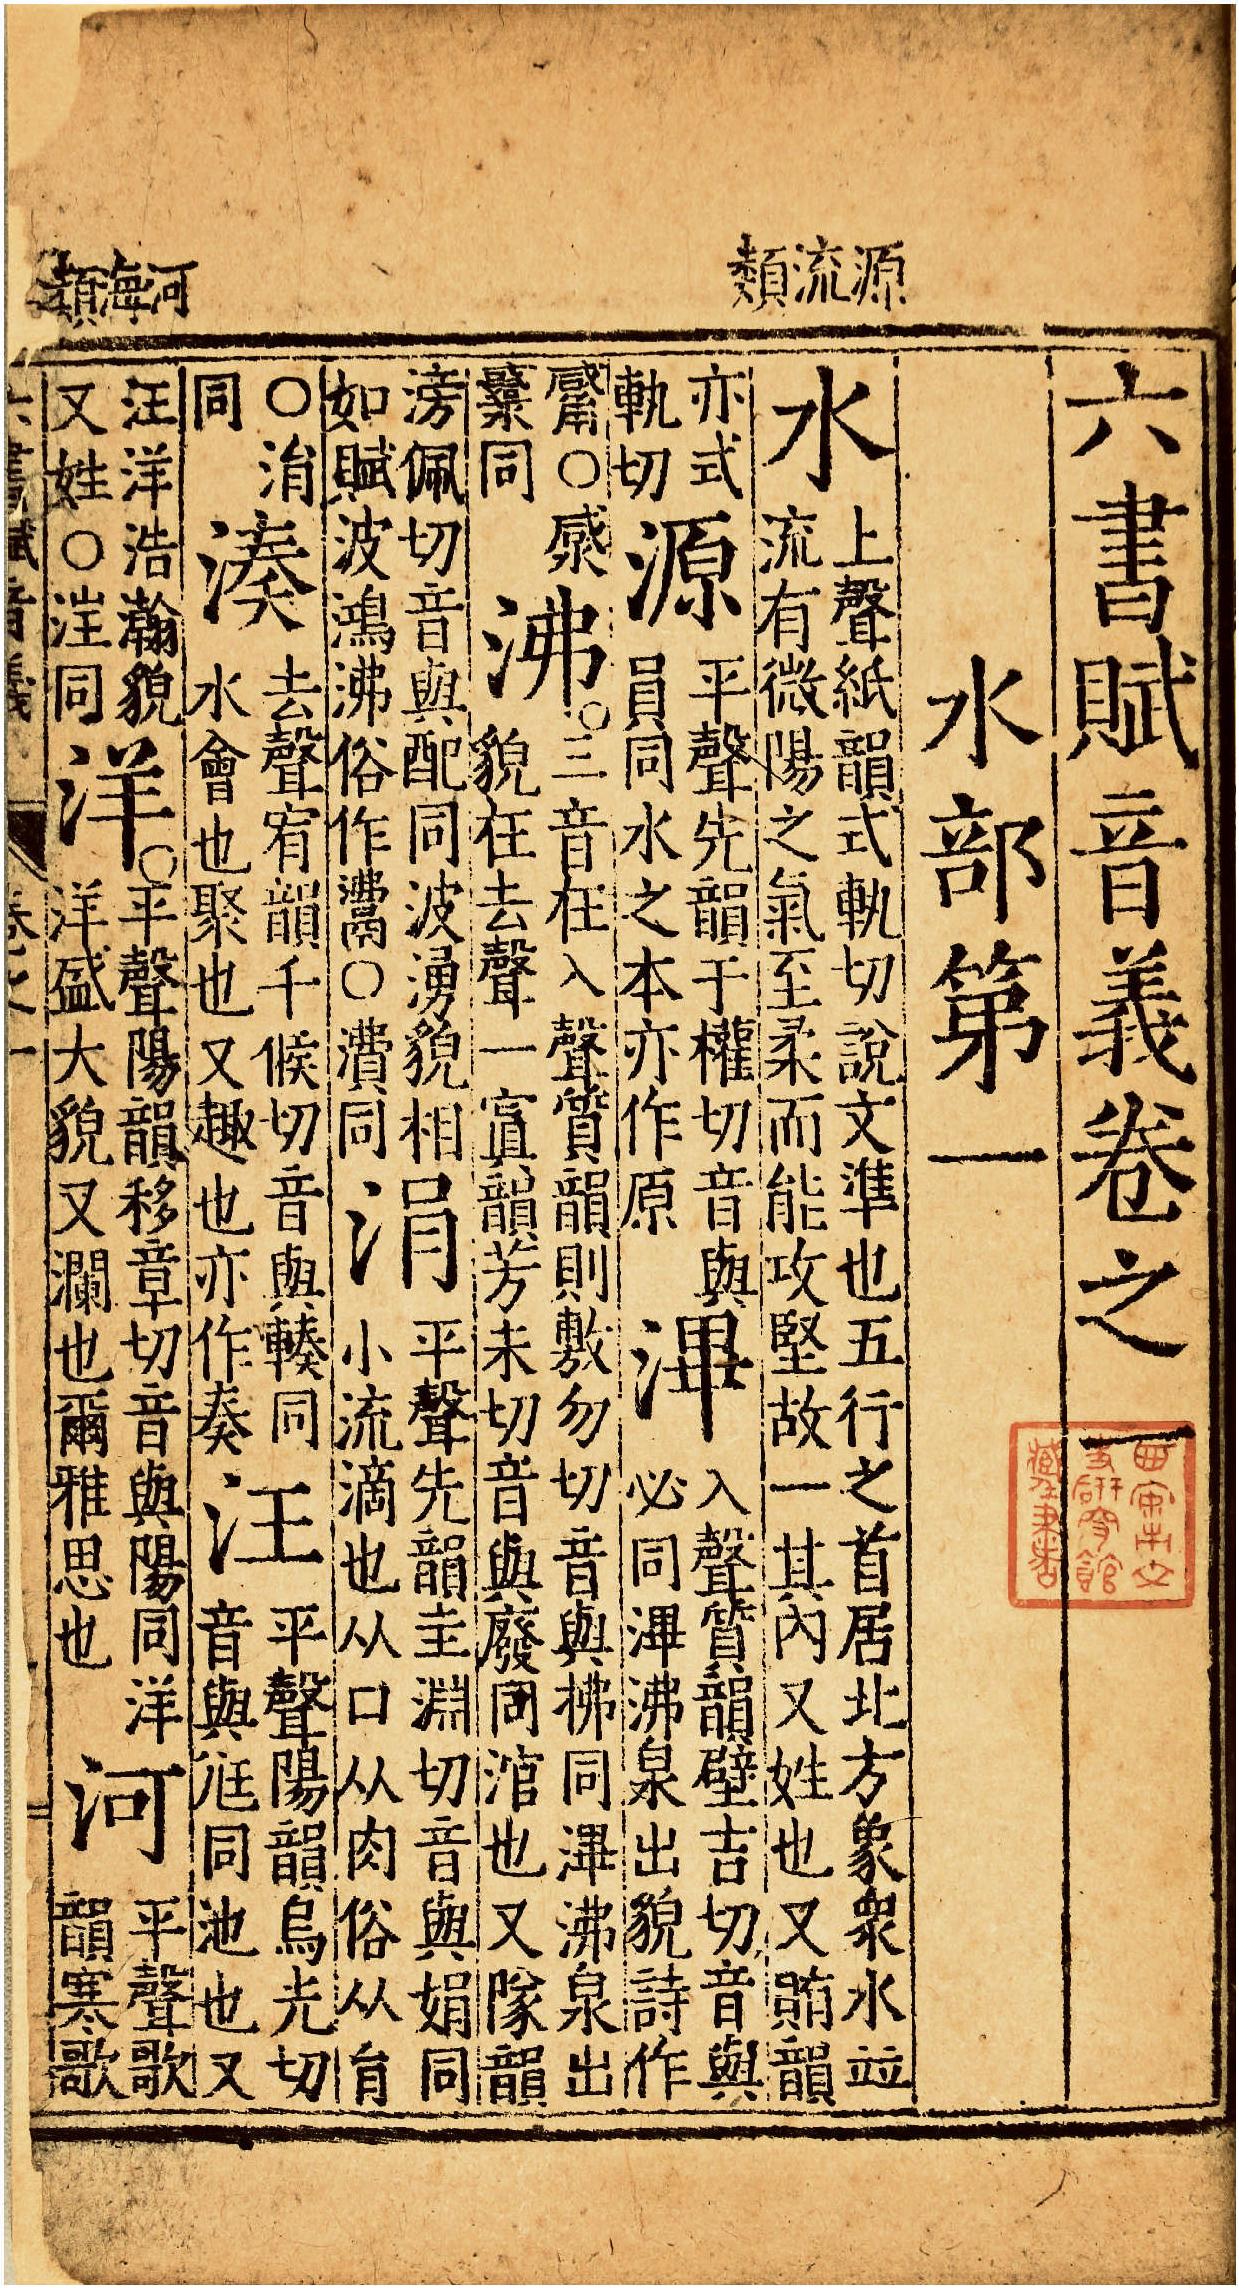 源流類
河海類
六書賦音義卷之一
水部第一
水 上聲紙韻式軌切說文準也五行之首居北方象衆水竝流有微陽之氣至柔而能攻堅故一其內又姓也又賄韻
亦式軌切 源 平聲先韻于權切音與員同水之本亦作原 滭 入聲質韻壁吉切音與必同滭沸泉出貌詩作
觱○同 沸 ○三音在入聲質韻則敷勿切音與拂同滭沸泉出貌在去聲一寘韻芳未切音與廢同涫也又隊韻
滂佩切音與配同波湧貌相如賦波鴻沸俗作○同 涓 平聲先韻圭淵切音與娟同小流滴也从口从肉俗从肙
○㳙同 湊 去聲宥韻千候切音與輳同水會也聚也又趣也亦作奏 汪 平聲陽韻烏光切音與尫同池也又
汪洋浩瀚貌又姓○同 洋 ○平聲陽韻移章切音與陽同洋洋盛大貌又瀾也爾雅思也 河 平聲歌韻寒歌
六書賦音義 卷之一